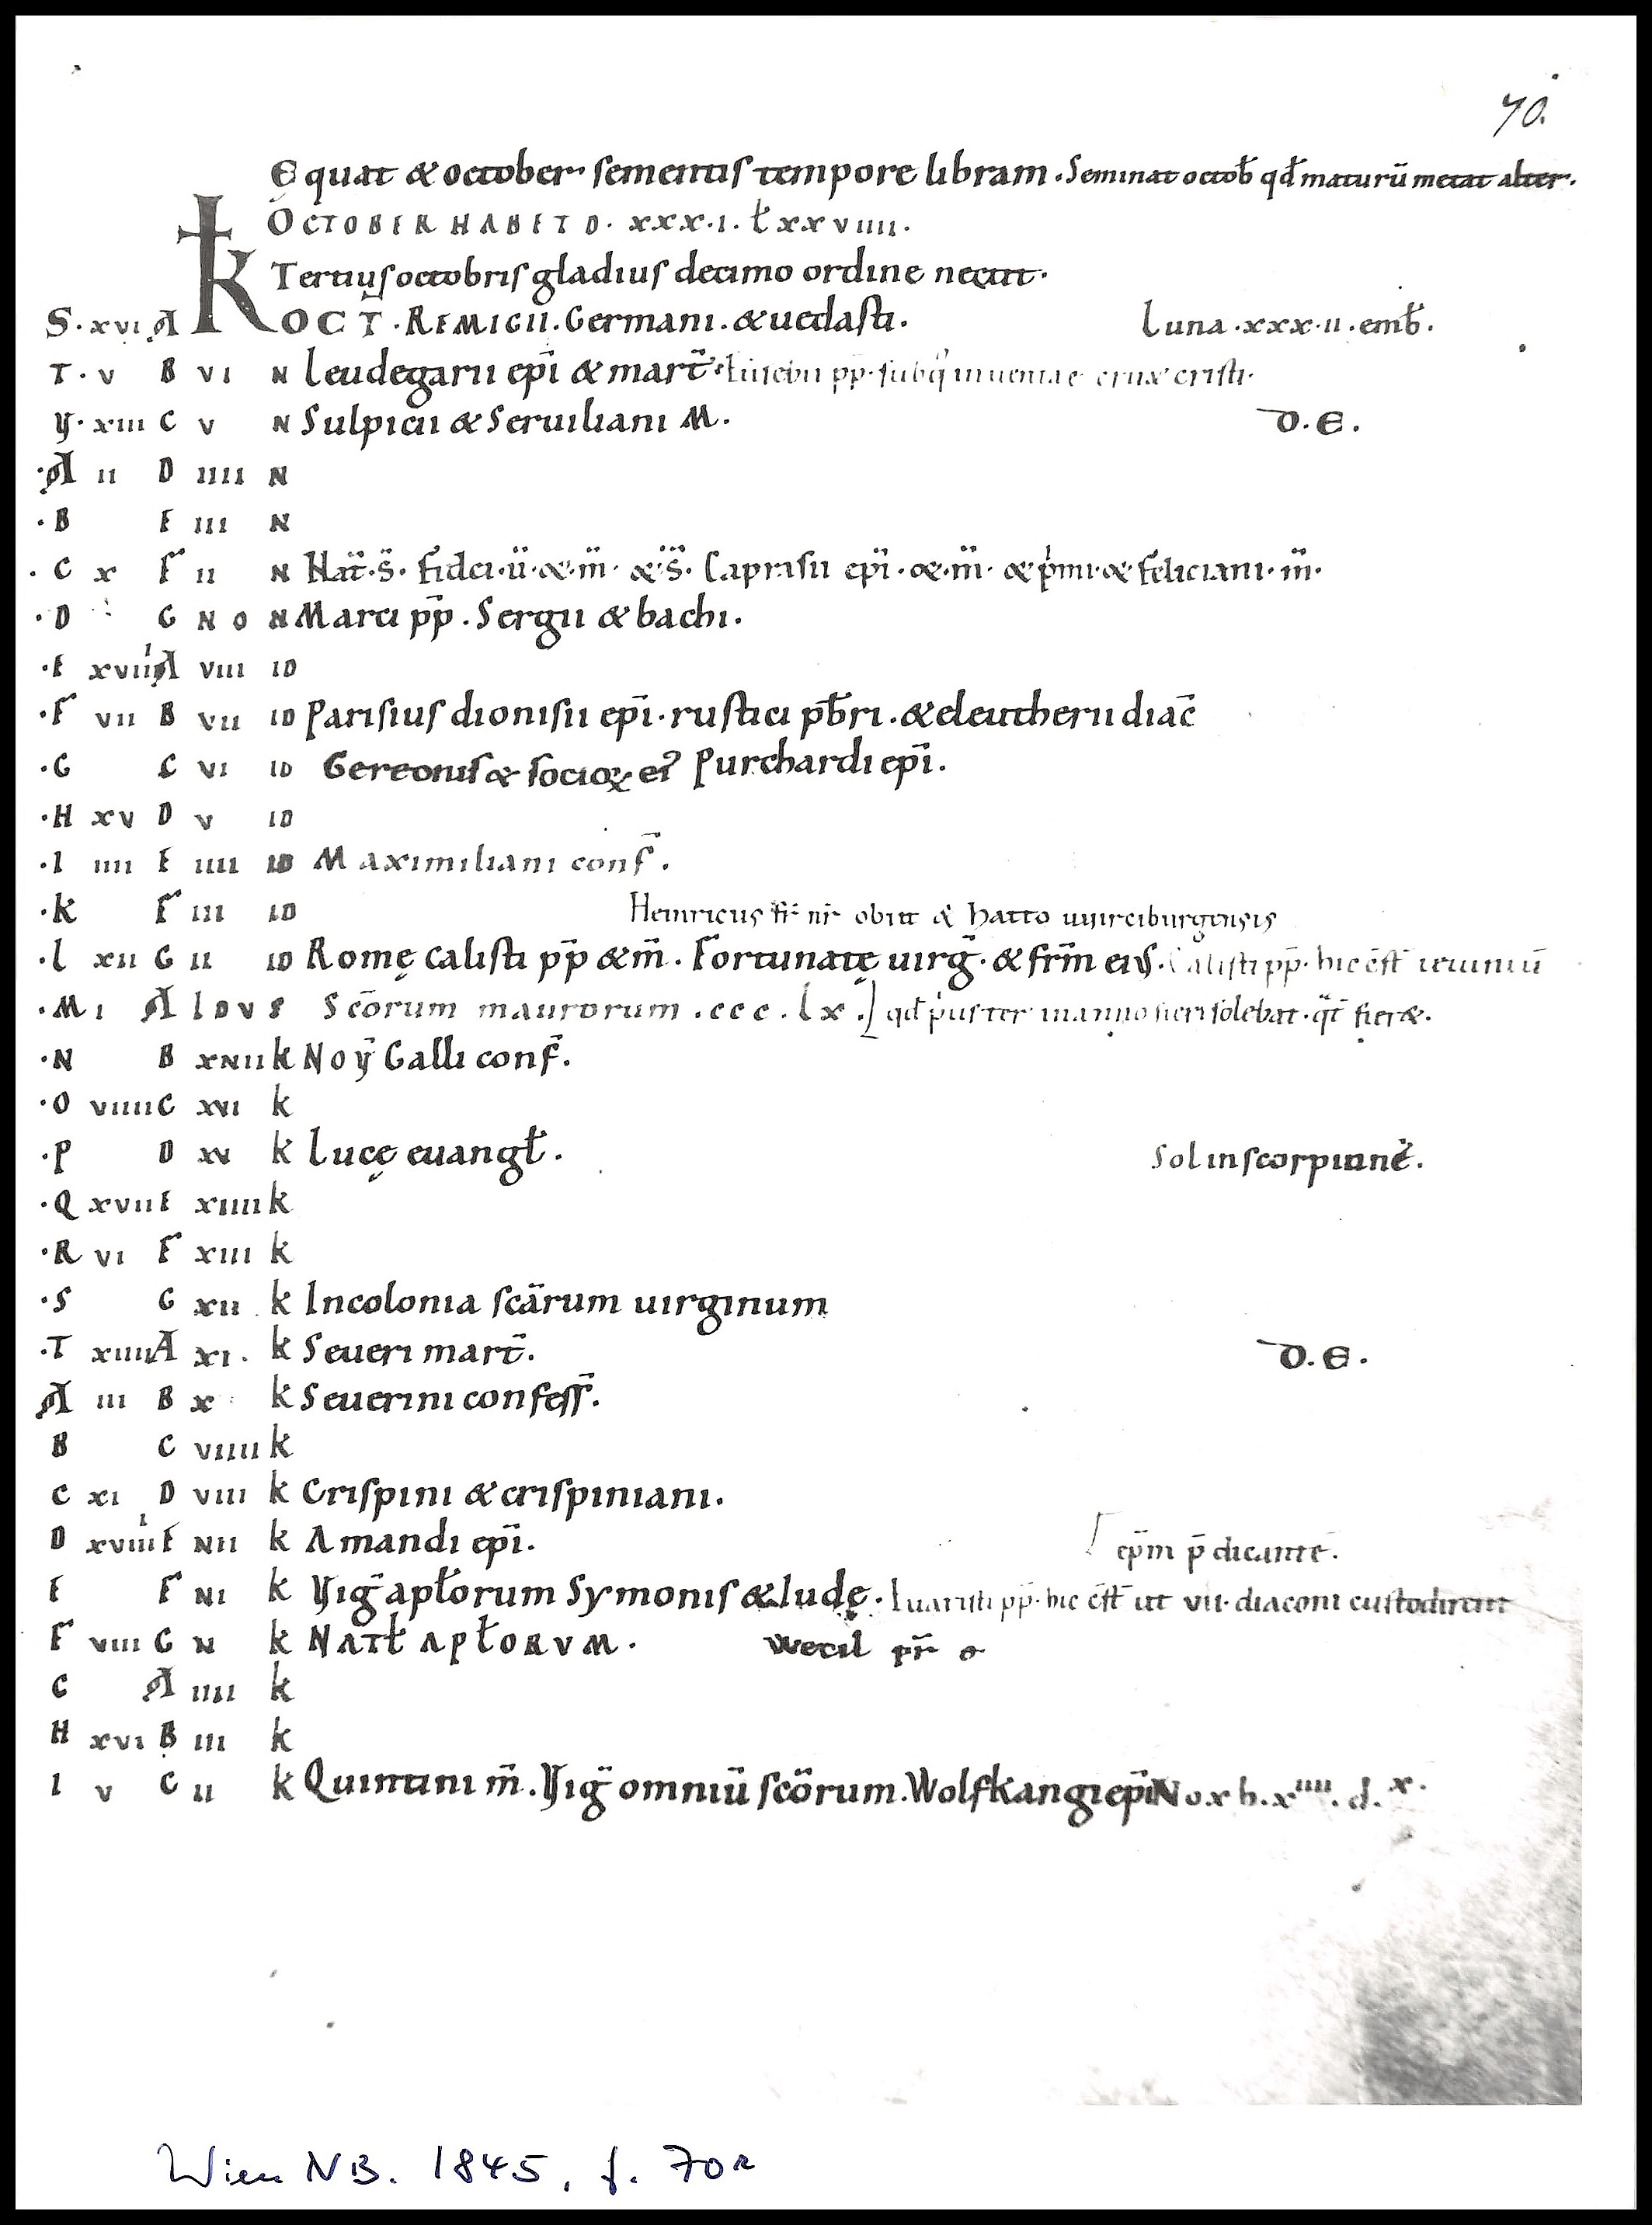 70.
Equat & october sementis tempore libram. Seminat octob̄ qđ maturū metat alter.
OCTOBER HABET D. xxx.i. ł xxviiii.
Tertius octobris gladius decimo ordine nectit.
S. xvi A K OCT. REMIGII. Germani. & uedasti. Luna .xxx.ii. emb̄.
T. v B vi N Leudegarii ep̄i & mart̄. Eusebii pp̄. sub q̄ inuenta ē crux cristi.
Y. xiii C v N Sulpicii & Seruiliani M. D. E.
.A ii D iiii N
.B E iii N
.C x F ii N Nat̄. S̄. Fidei. ū. & .m̄. & S̄. Caprasii ep̄i. & .m̄. & p̄mi. & feliciani. m̄.
.D G N O N Marci pp̄. Sergii & bachi.
.E xviii A viii ID
.F vii B vii ID Parisius dionisii ep̄i. rustici pb̄ri. & eleutherii diac̄
.G C vi ID Gereonis & socioꝝ eiꝰ Purchardi ep̄i.
.H xv D v ID
.I iiii E iiii ID Maximiliani conf̄.
.K F iii ID Heinricus fr̄ nr̄ obiit & hatto uuirciburgensis
.L xii G ii ID Romę calisti pp̄ & m̄. Fortunatę uirḡ. & frm̄ eiꝰ. Calisti pp̄. hic c̄st̄ ieiuniū
.M i A IDVS Scōrum maurorum .ccc.lx. qđ p̓us ter in anno fieri solebat. q̄t̄ fier&.
.N B xvii k Noṽ Galli conf̄.
.O viiii C xvi k
.P D xv k Lucę euangł. Sol in scorpionē.
.Q xvii E xiiii k
.R vi F xiii k
.S G xii k In colonia scārum uirginum
.T xiiii A xi. k Seueri mart̄. D. E.
A iii B x k Seuerini confess̄.
B C viiii k
C xi D viii k Crispini & crispiniani.
D xviiii E vii k Amandi ep̄i. ep̄m p̄dicantē.
E F vi k Vig̃ apłorum Symonis & Iudę. Euaristi pp̄. hic c̄st̄ ut vii. diaconi custodirent
F viii G v k NATł APłORVM. Wecil pr̄ o
G A iiii k
H xvi B iii k
I v C ii k Quintini m̄. Vig̃ omniū scōrum. Wolfkangi ep̄i Nox h. xiiii. d. x.
Wien NB. 1845, f. 70r